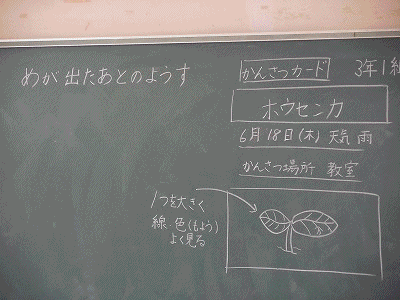 めが出たあとのようす
かんさつカード 3年1組
ホウセンカ
6月18日(木) 天気 雨
かんさつ場所 教室
1つを大きく
線・色(もよう)
よく見る